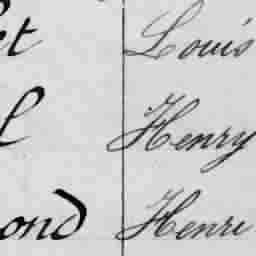 et Louis
l Henry
ond Henri